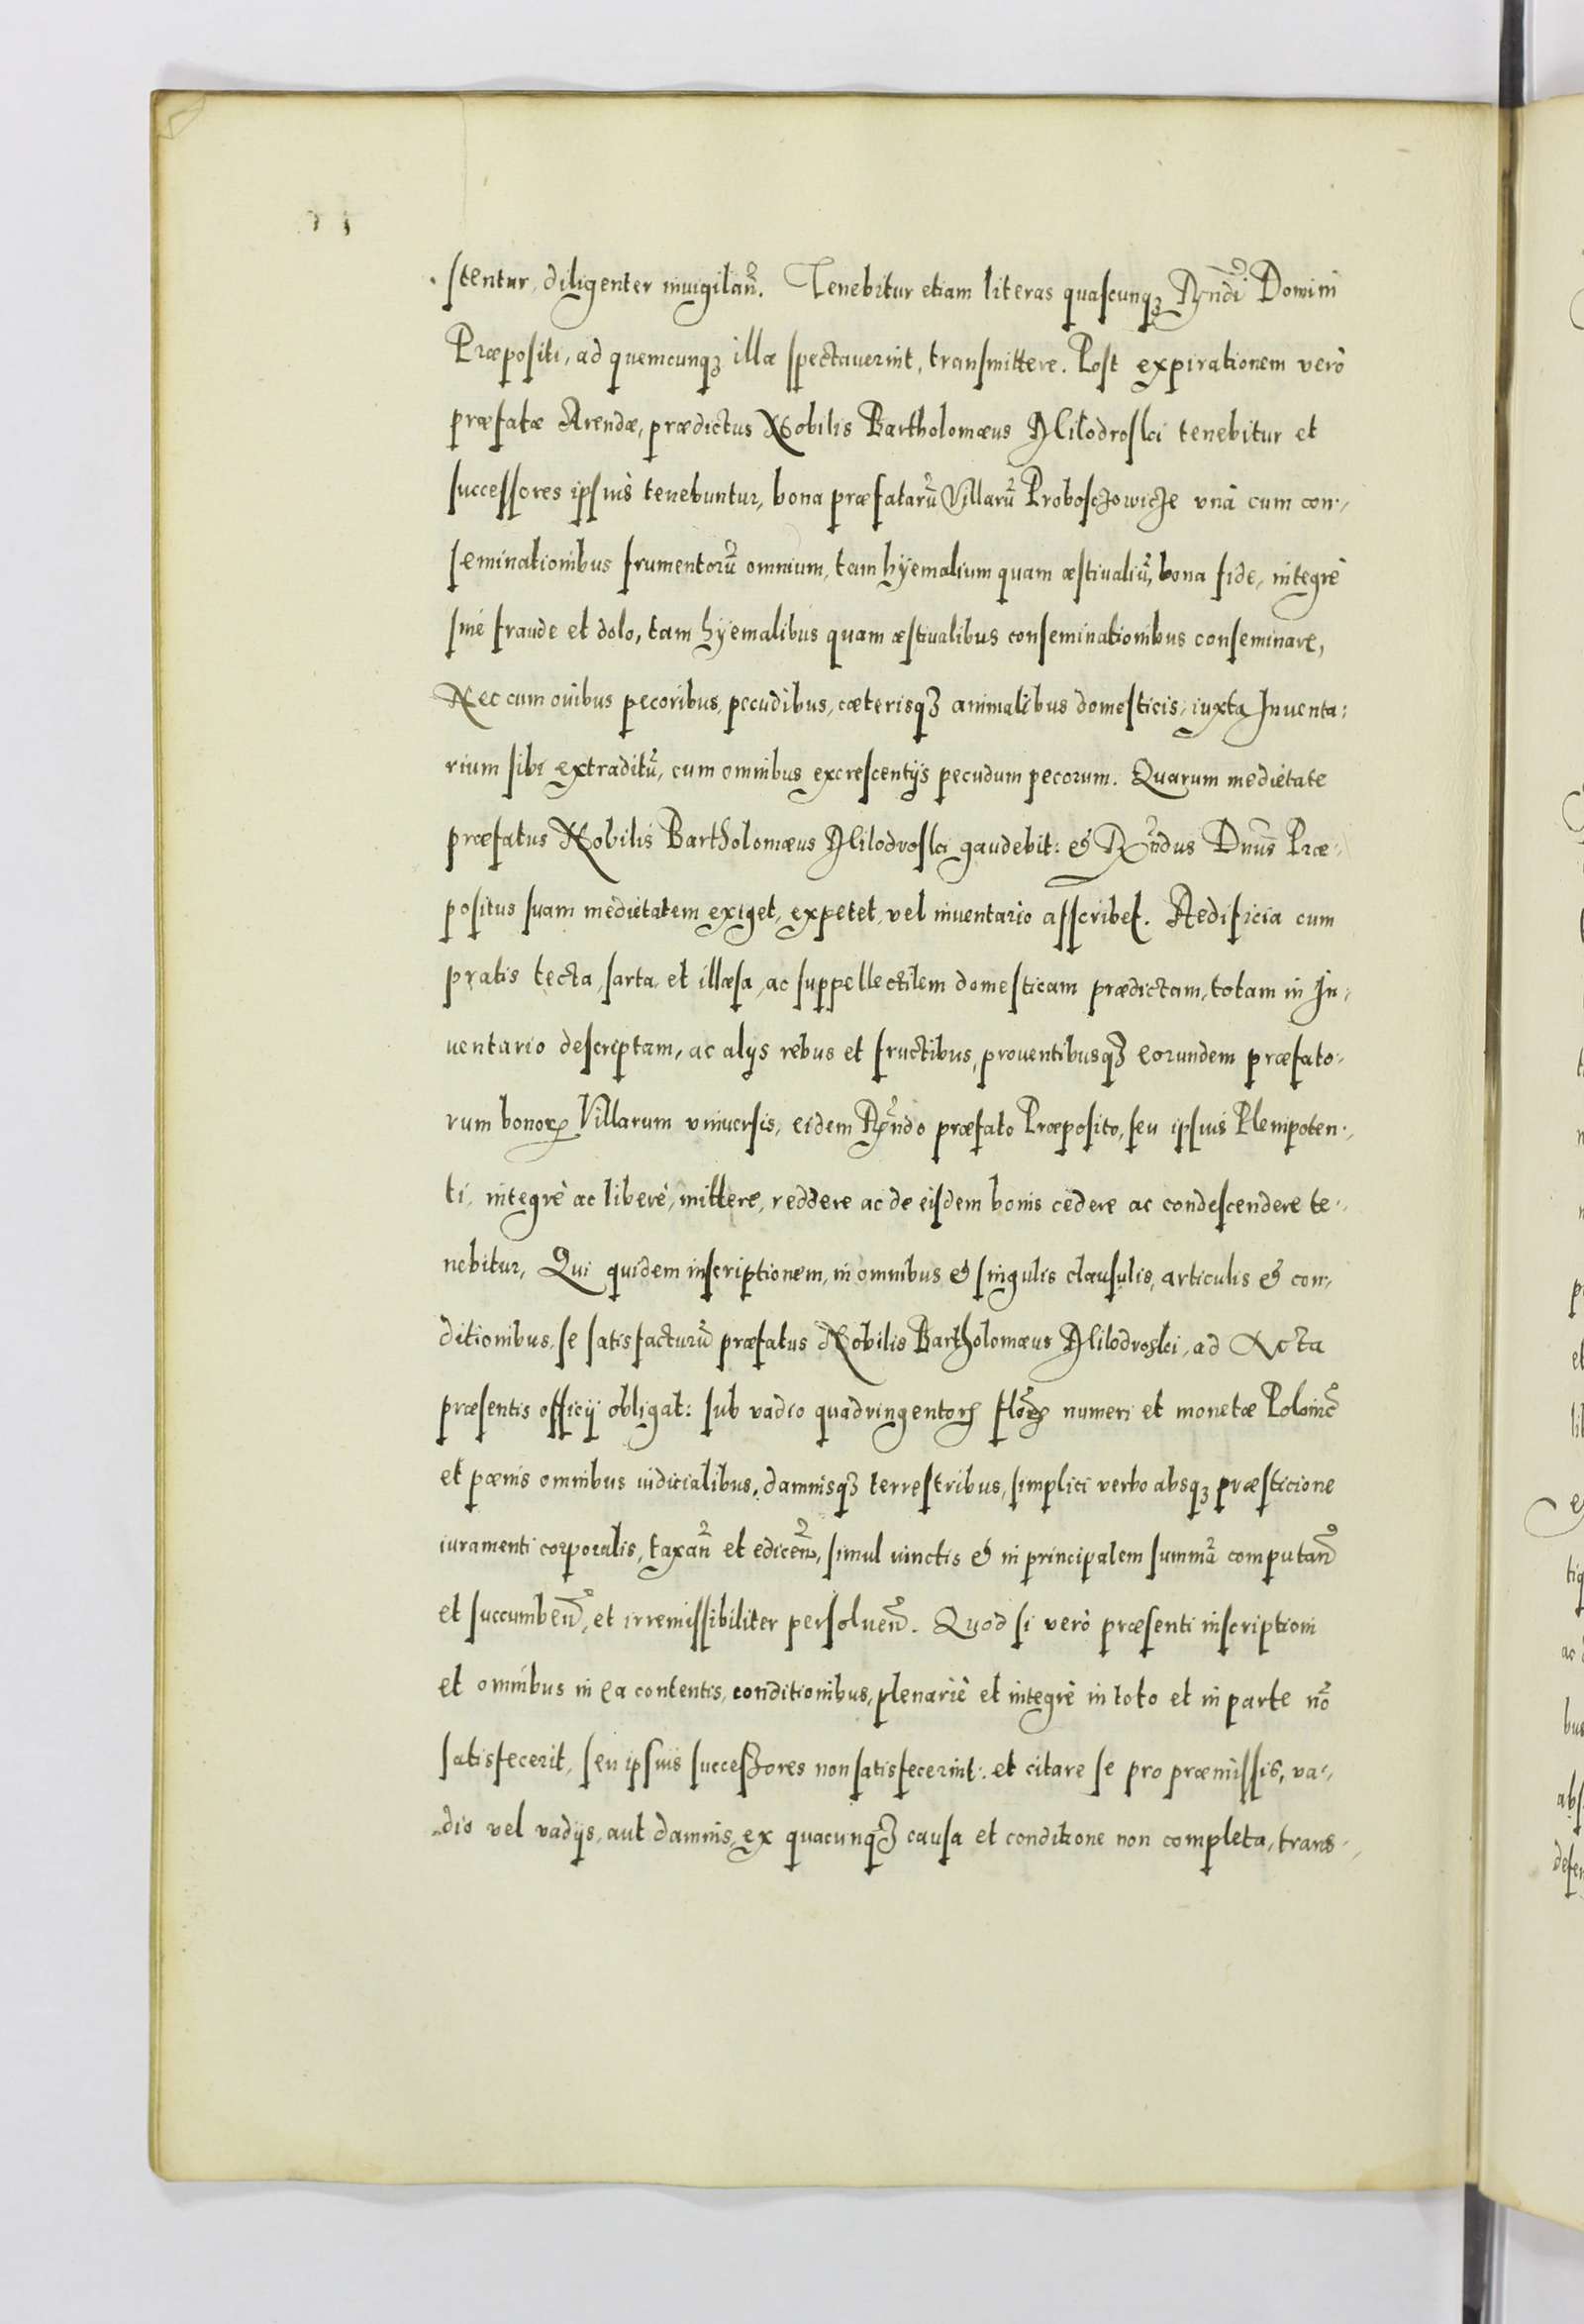 stentur, diligenter inuigilañ. Tenebitur etiam literas quascunqȝ Rñdi Domini
Præpositi, ad quemcunqȝ illæ spectauerint, transmittere. Post expirationem verò
præfatæ Arendæ, prædictus Nobilis Bartholomæus Milodroski tenebitur et
successores ipsius tenebuntur, bona præfatarũ Villarũ Proboszowicze vnà cum con-
seminationibus frumentorũ omnium, tam hyemalium quam æstiualiũ, bona fide, integrè
sine fraude et dolo, tam hyemalibus quam æstiualibus conseminationibus conseminare,
Nec cum ouibus pecoribus, pecudibus, cæterisqȝ animalibus domesticis, iuxta Inuenta:
rium sibi extraditũ, cum omnibus excrescentijs pecudum pecorum. Quarum medietate
præfatus Nobilis Bartholomæus Milodroski gaudebit: & Rñdus Dnũs Præ-
positus suam medietatem exiget, expetet, vel inuentario asscribet. Aedificia cum
pratis tecta, sarta, et illæsa, ac suppellectilem domesticam prædictam, totam in In-
uentario descriptam, ac alijs rebus et fructibus, prouentibusqȝ eorundem præfato-
rum bonoꝝ Villarum vniuersis, eidem Rñdo præfato Præposito, seu ipsius Plenipoten-
ti, integrè ac liberè, mittere, reddere ac de eisdem bonis cedere ac condescendere te-
nebitur, Qui quidem inscriptionem, in omnibus & singulis clausulis, articulis & con-
ditionibus, se satisfacturũ præfatus Nobilis Bartholomæus Milodroski, ad Acta
præsentis officij obligat: sub vadio quadringentoꝝ floꝝ numeri et monetæ Polonic̃
et pœnis omnibus iudicialibus, damnisqȝ terrestribus, simplici verbo absqȝ præsticione
iuramenti corporalis, taxañ et edicen̄, simul iunctis & in principalem summã computañ
et succumbeñ, et irremissibiliter persolueñ. Quod si verò præsenti inscriptioni
et omnibus in ea contentis, conditionibus, plenariè et integrè in toto et in parte nõ
satisfecerit, seu ipsius successores non satisfecerint: et citare se pro præmissis, va-
dio vel vadijs, aut damnis, ex quacunqȝ causa et conditione non completa, trans-